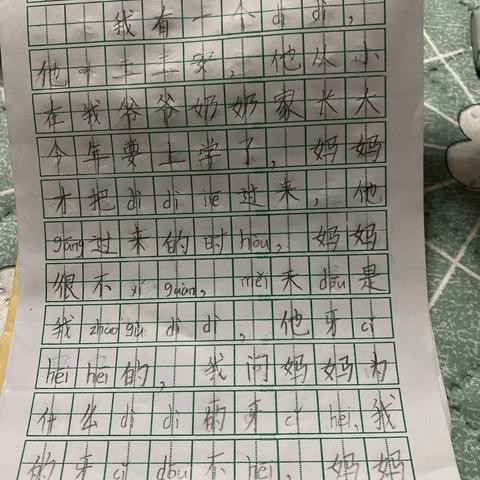 我有一个dì di，
他叫王王安，他从小
在我爷爷奶奶家长大
今年要上学了，妈妈
才把dì di jiē过来，他
gāng过来的时hòu，妈妈
很不xí guàn，měi天dōu是
我zhào gù dì di，他牙cǐ
hēi hēi的，我问妈妈为
什么dì di的牙cǐ hēi，我
的牙cǐ dōu不hēi，妈妈